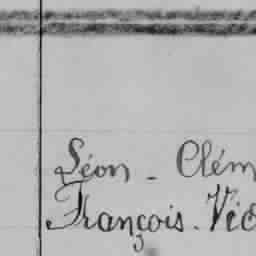 Léon - Clém
François - Vic